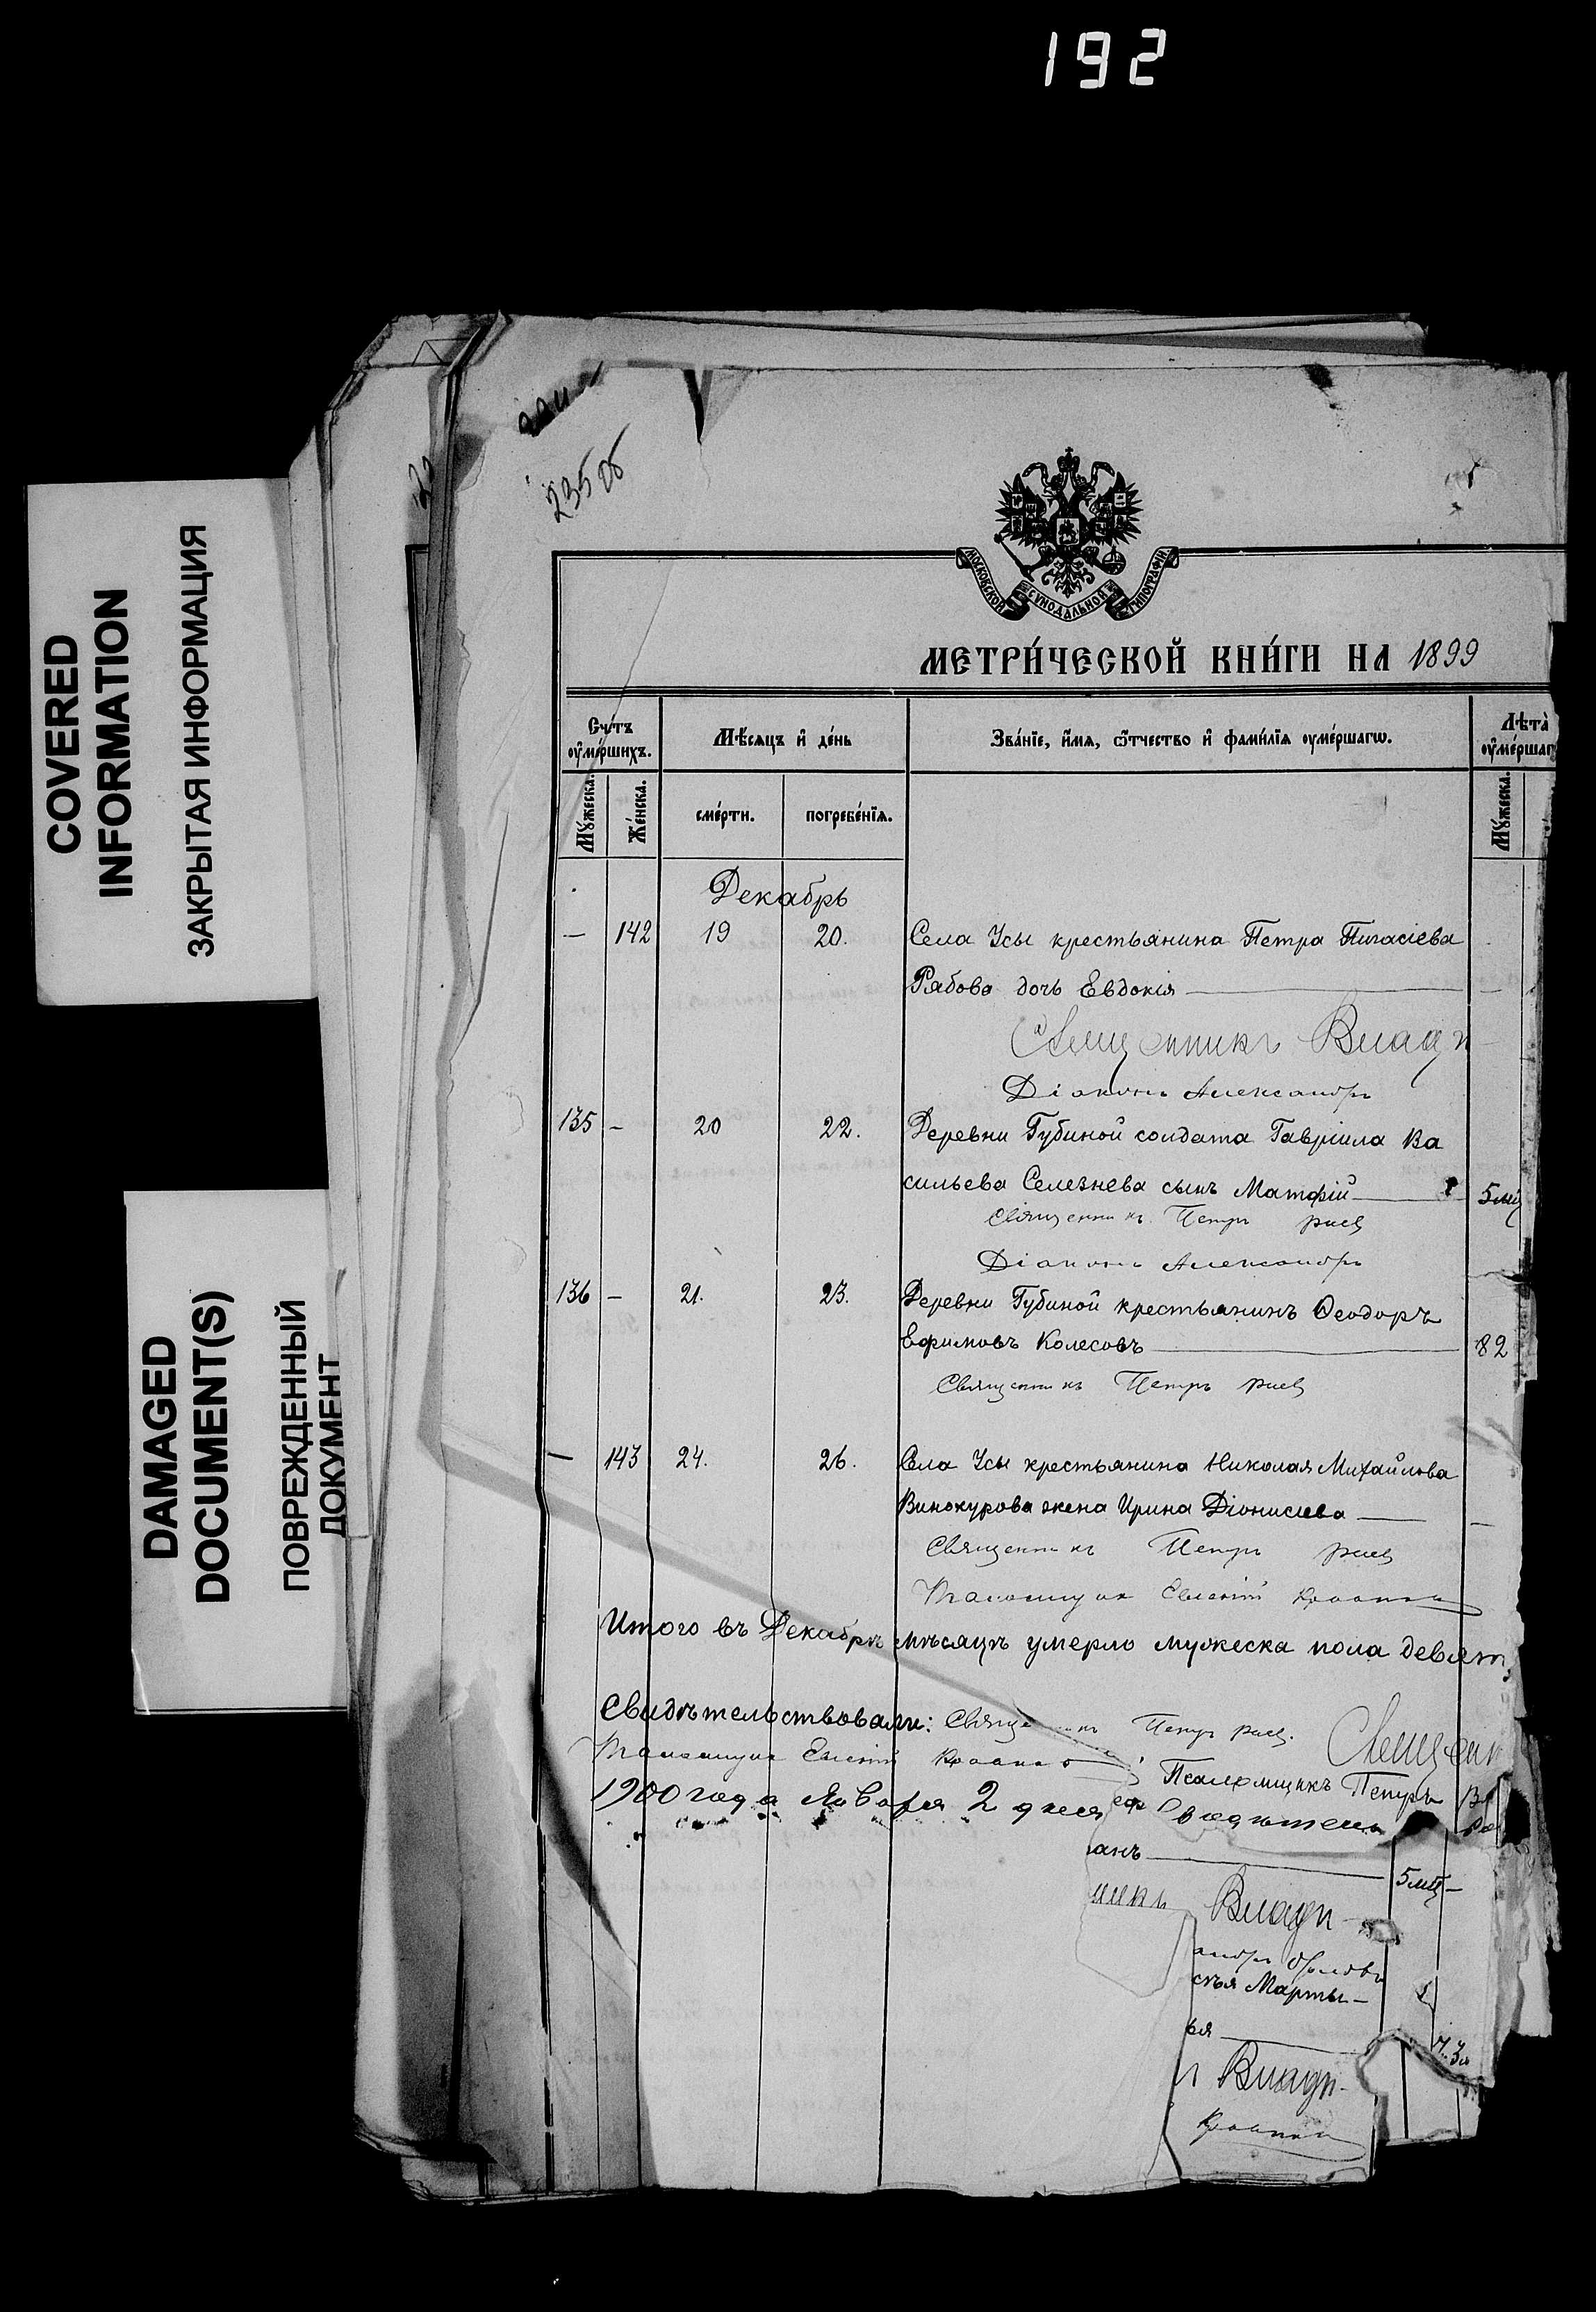 192
COVERED
INFORMATION
ЗАКРЫТАЯ ИНФОРМАЦИЯ
DAMAGED
DOCUMENT(S)
ПОВРЕЖДЕННЫЙ
ДОКУМЕНТ
235 об
МОСКОВСКОЙ СУНОДАЛЬНОЙ ТИПОГРАФІИ
МЕТРИ́ЧЕСКОЙ КНИ́ГИ НА 1899
Счётъ ᲂу҆ме́ршихъ.
Мѣ́сяцъ и҆ де́нь
Зва́нїе, и҆́мя, ѻ҆́тчество и҆ фами́лїя ᲂуме́ршагѡ.
Лѣта̀ ᲂу҆ме́ршаг
Мꙋ́жеска.
Же́нска.
сме́рти.
погребе́нїя.
Мꙋ́жеска.
Декабрь
— 142 19 20. Села Усы крестьянина Петра Пигасіева
Рябова дочь Евдокія —
Священникъ Влади
Діаконъ Александръ
135 — 20 22. Деревни Губиной солдата Гавріила Ва
сильева Селезнева сынъ Матфій — 5 мц
Священникъ Петръ
Діаконъ Александръ
136 — 21. 23. Деревни Губиной крестьянинъ Ѳеодоръ
Ефимовъ Колесовъ — 82
Священникъ Петръ
— 143 24. 26. Села Усы крестьянина Николая Михайлова
Винокурова жена Ирина Діонисіева — —
Священникъ Петръ
Псаломщик Евгеній
Итого въ Декабрѣ мѣсяцѣ умерло мужеска пола девят
Свидѣтельствовали: Священникъ Петръ
Священ
Псаломщик Евгеній
Псаломщикъ Петръ
1900 года Января 2 дня
анъ — 5 мц —
никъ Влади
андръ Орловъ
Марты—
ья —
Влади